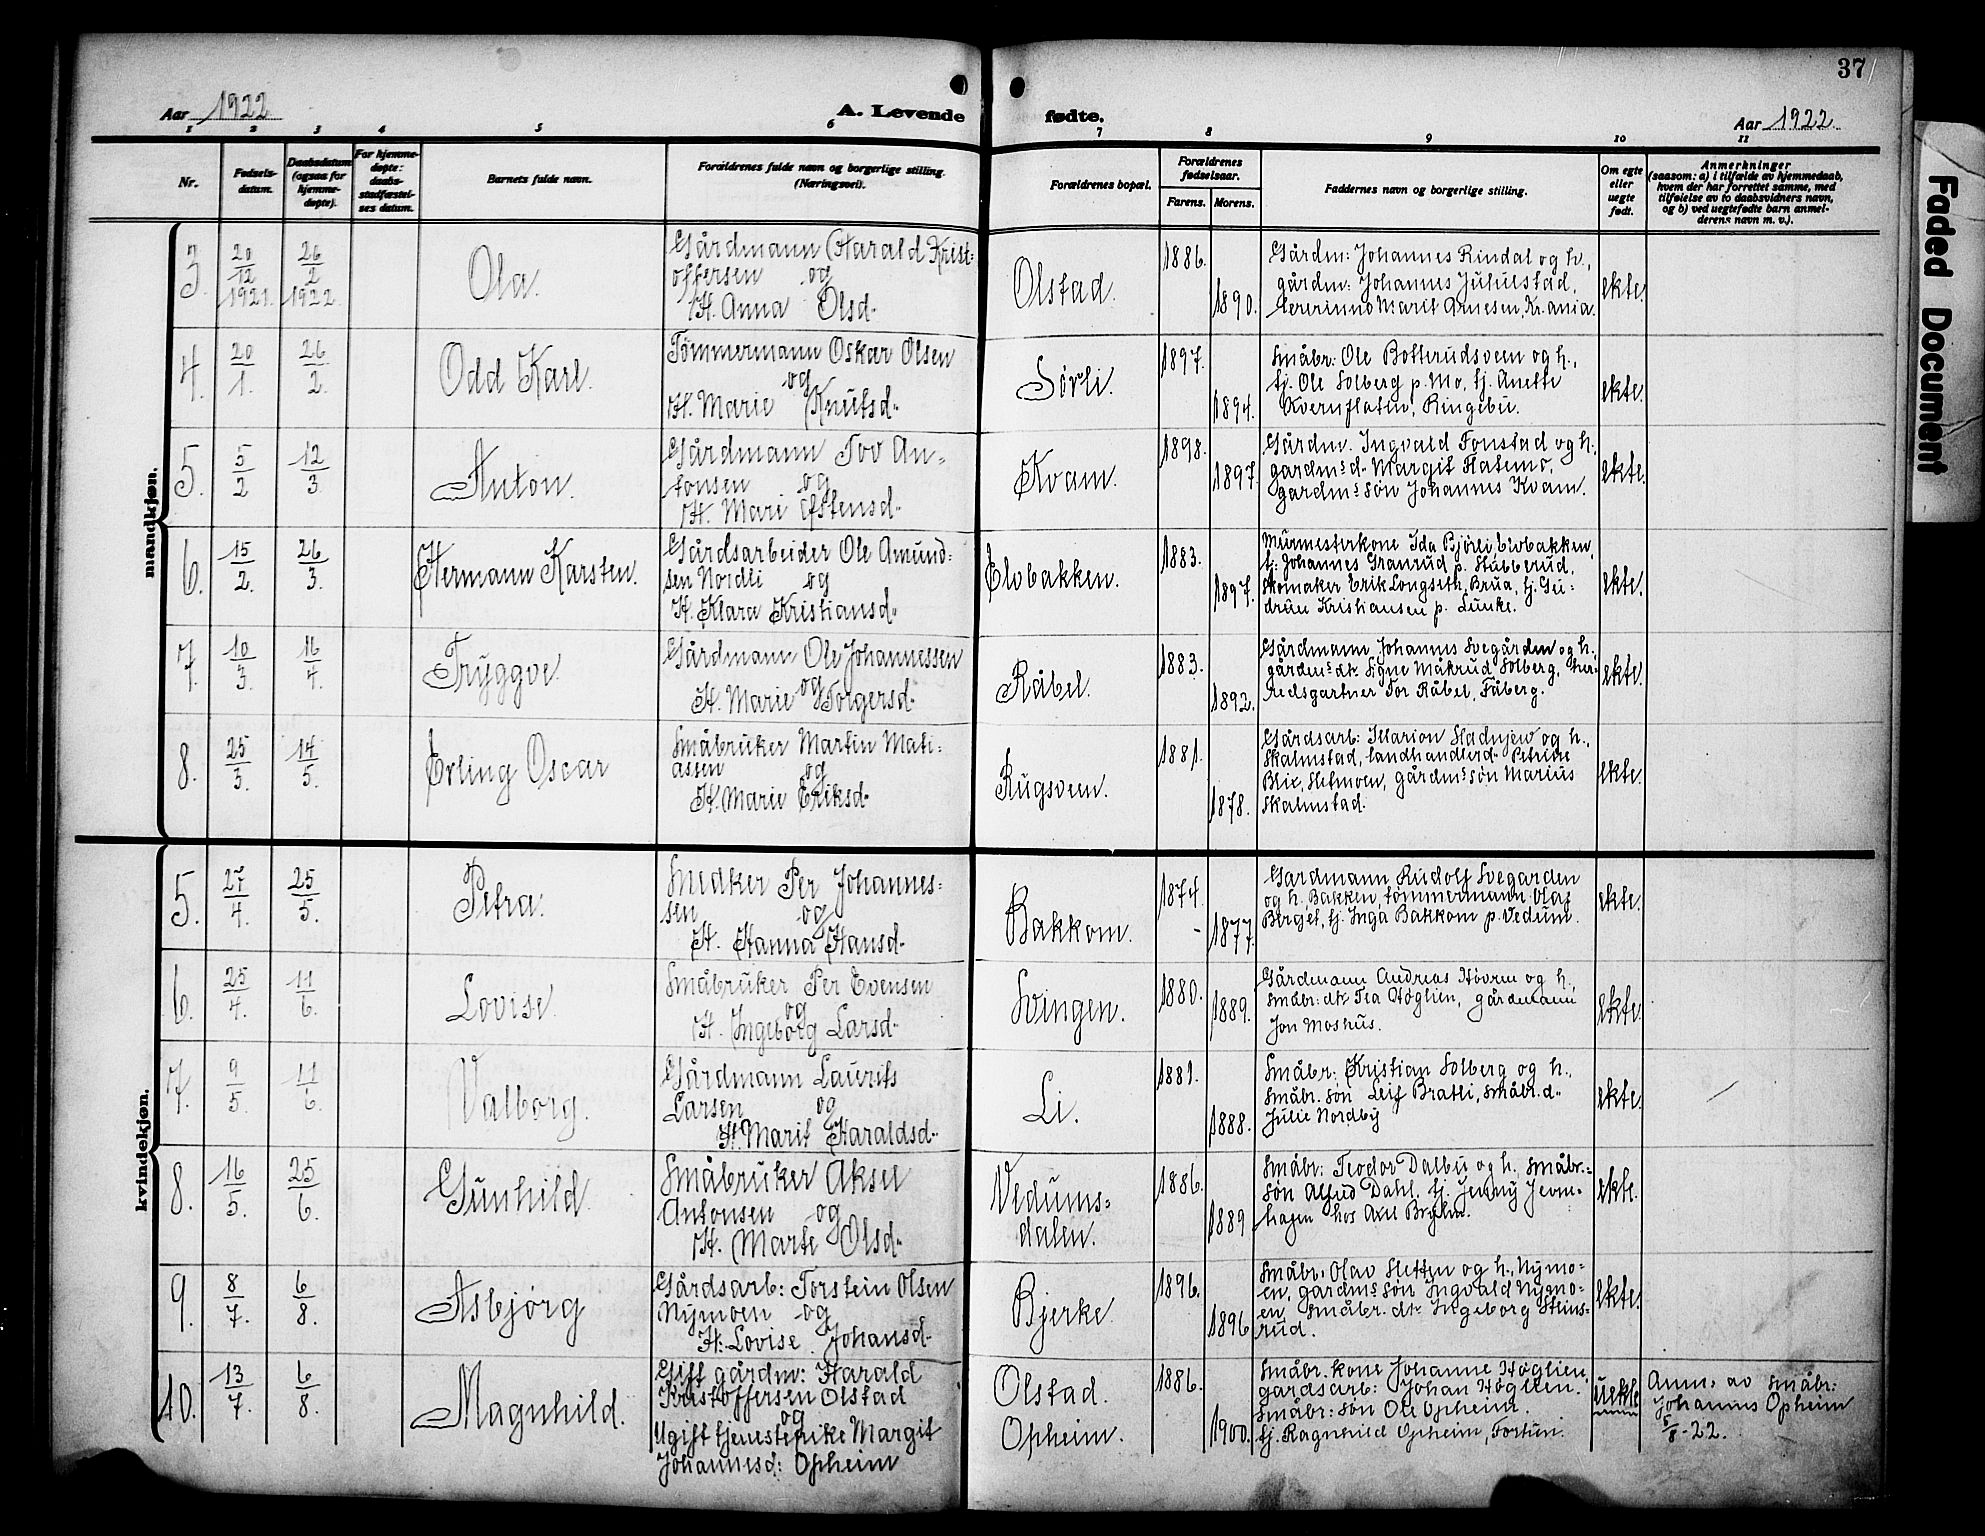 37
Aar 1922
A. Levende fødte.
Aar 1922.
1 2 3 4 5 6 7 8 9 10 11
Nr.
Fødsels-
datum.
Daabsdatum
(ogsaa for
hjemme-
døpte).
For hjemme-
døpte:
daabs-
stadfæstel-
ses datum.
Barnets fulde navn.
Forældrenes fulde navn og borgerlige stilling.
(Næringsvei).
Forældrenes bopæl.
Forældrenes
fødselsaar.
Farens. Morens.
Faddernes navn og borgerlige stilling.
Om egte
eller
uegte
født.
Anmerkninger
(saasom: a) i tilfælde av hjemmedaab,
hvem der har forrettet samme, med
tilføielse av to daabsvidners navn,
og b) ved uegtefødte barn anmel-
derens navn m. v.).
Faded Document
mandkjøn.
3. 20/12 1921. 26/2 1922. Ola.
Gårdmann Harald Krist-
offersen og
H. Anna Olsd.
Olstad. 1886. 1890.
Gårdm: Johannes Rindal og h.,
gårdm: Johannes Juliusstad,
Marit Arnesen, Kr.ania.
ekte.
4. 20/1. 26/2. Odd Karl.
Tømmermann Oskar Olsen
og
H. Marie Knutsd.
Sørli. 1897. 1894.
Småbr: Ole Botterudsveen og h.,
tj. Ole Solberg p. Mo, tj. Anette
Kvernflaten, Ringebu.
ekte.
5. 5/2 12/3 Anton.
Gårdmann Tov An-
tonsen og
H. Mari Østensd.
Kvam. 1898. 1897.
Gårdm. Ingvald Fonstad og h.,
gardm:s d. Margit Flatemo,
gardm:s søn Johannes Kvam.
ekte.
6. 15/2. 26/3. Hermann Karsten.
Gårdsarbeider Ole Amund-
sen Nordli og
H. Klara Kristiansd.
Elvbakken. 1883. 1897.
Murmesterkone Ida Bjørli, Elvbakken,
tj. Johannes Granrud p. Stubberud,
skomaker Erik Longseth, Brua, tj. Gu-
drun Kristiansen p. Lunke.
ekte.
7. 10/3. 16/4. Tryggve
Gårdmann Ole Johannessen
og
H. Marie Torgersd.
Råbel. 1883. 1892.
Gårdmann Johannes Svegården og h.,
gårdm:s dtr. Signe Måkrud Solberg, her-
redsgartner Tor Råbel, Fåberg.
ekte.
8. 25/3. 14/5. Erling Oscar
Småbruker Martin Mati-
assen og
H. Marie Eriksd.
Rugsveen. 1881. 1878.
Gårdsarb: Illarion Sladnjew og h.,
Skalmstad, landhandlerd. Petrine
Blix, Helmoen, gårdm:s søn Marius
Skalmstad.
ekte.
kvindekjøn.
5. 27/4. 25/5. Petra.
Snedker Per Johannes-
sen og
H. Hanna Hansd.
Bakkom. 1874. 1877.
Gardmann Rudolf Svegarden
og h, Bakken, tømmermann Olaf
Berget, tj. Inga Bakkom p. Vedum.
ekte.
6. 25/4. 11/6. Lovise.
Småbruker Per Evensen
og
H. Ingeborg Larsd.
Svingen. 1880. 1889.
Gårdmann Andreas Hovren og h.,
småbr: dtr. Tea Høglien, gårdmann
Jon Moshus.
ekte.
7. 9/5. 11/6. Valborg.
Gårdmann Laurits
Larsen og
H. Marit Haraldsd.
Li. 1881. 1888.
Småbr: Kristian Solberg og h.,
Småbr. søn Leif Bratli, småbr. d.
Julie Nordby
ekte.
8. 16/5. 25/6. Gunhild.
Småbruker Aksel
Antonsen og
H. Marte Olsd.
Vedums-
dalen. 1886. 1889
Småbr: Teodor Dalbu og h. småbr.-
søn Alfred Dahl, tj. Jenny Jevn-
hagen hos Axel Bryhn.
ekte.
9. 8/7. 6/8. Asbjørg
Gårdsarb: Torstein Olsen
Nymoen og
H: Lovise Johansd.
Bjerke. 1896. 1896
Småbr. Olav Sletten og h., Nymo-
en, gardm:s søn Ingvald Nymo-
en, Småbr. dtr. Ingeborg Steins-
rud.
ekte.
10. 13/7. 6/8. Magnhild.
Gift gårdm: Harald
Kristoffersen Olstad
og
Ugift tjenestepike Margit
Johannesd: Opheim
Olstad.
Opheim. 1886. 1900.
Småbr. kone Johanne Høglien,
gardsarb: Johan Høglien.
Småbr: søn Ole Opheim.
tj. Ragnhild Opheim, Fortun.
uekte
Anm. av småbr:
Johannes Opheim
5/8-22.